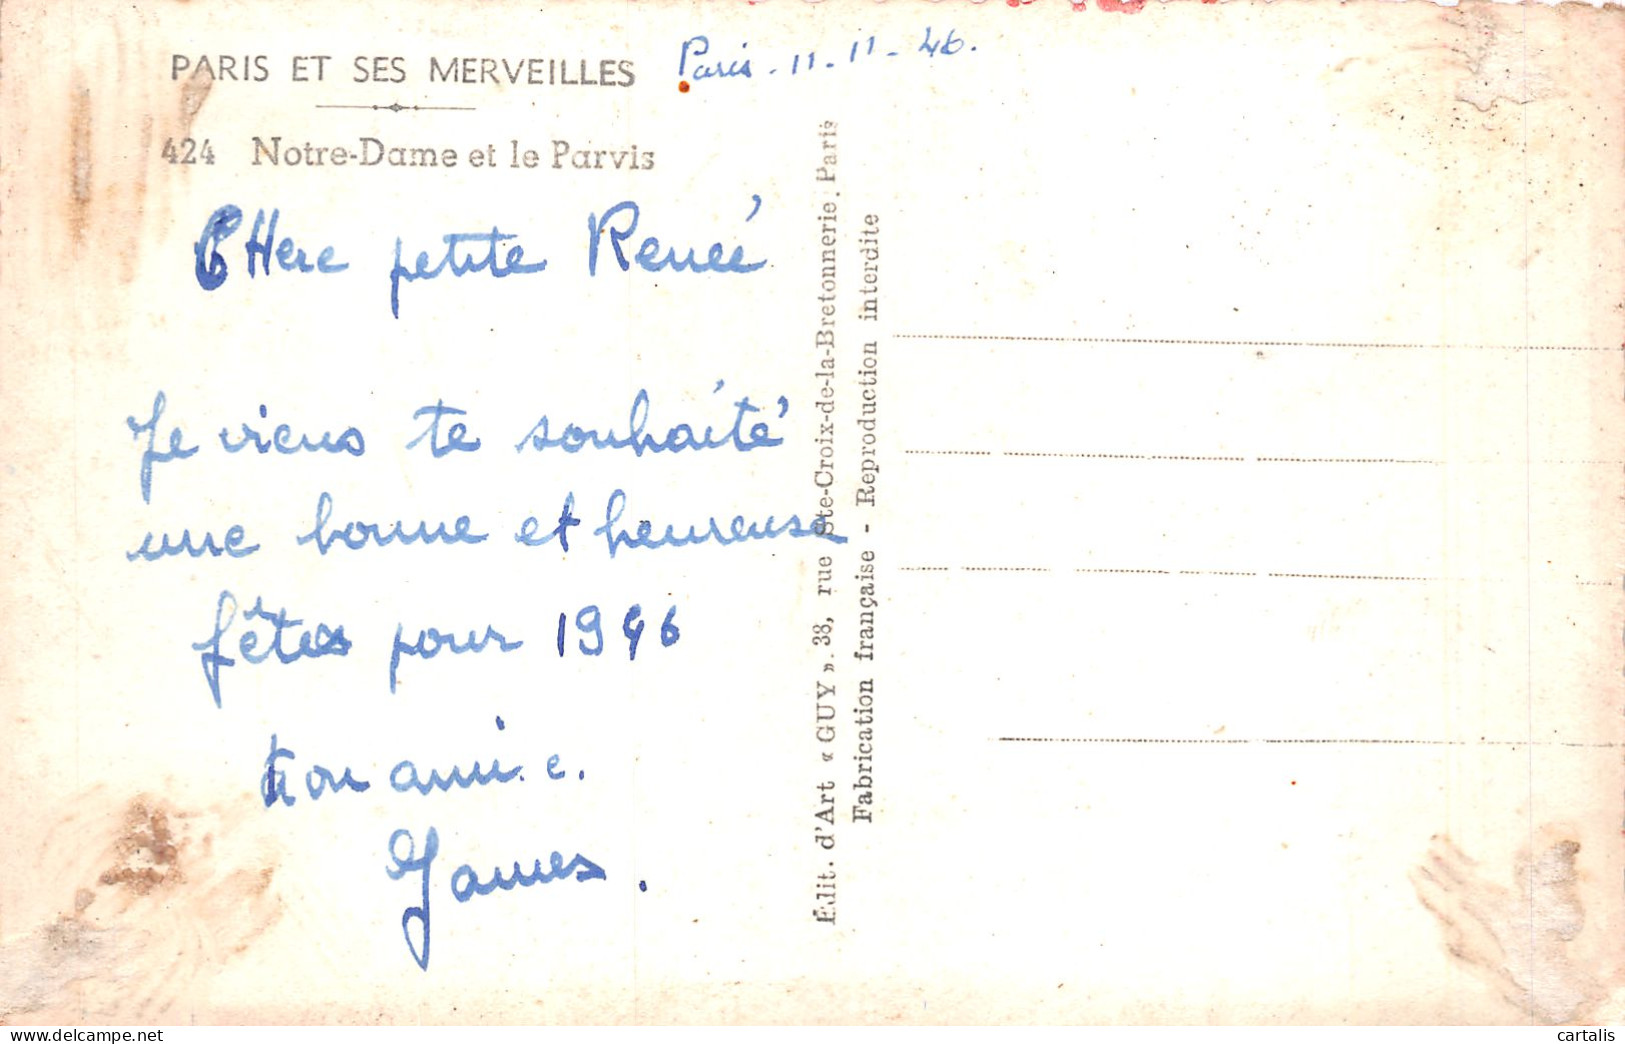 PARIS ET SES MERVEILLES
Paris - 11 - 11 - 46.
424 Notre-Dame et le Parvis
CHere petite Reneé
Je viens te souhaité
une bonne et heureuse
fêtes pour 1946
ton ami.e.
James.
Édit. d'Art « GUY ». 38, rue Ste-Croix-de-la-Bretonnerie. Paris
Fabrication française - Reproduction interdite
cartalis